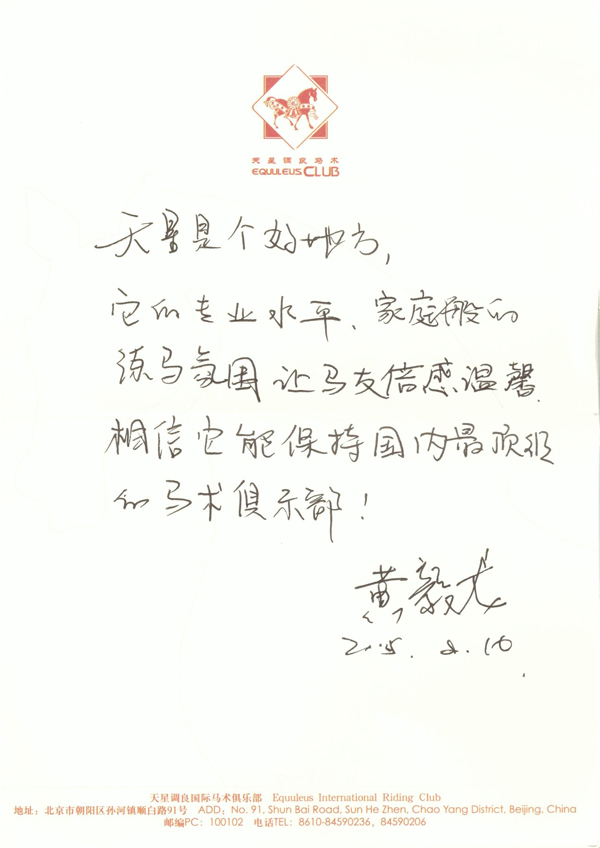 天星调良马术
EQUULEUS CLUB
天星是个好地方,
它的专业水平、家庭般的
练马氛围让马友倍感温馨.
相信它能保持国内最顶级
的马术俱乐部!
黄毅龙
2005. 2. 16
天星调良国际马术俱乐部 Equuleus International Riding Club
地址:北京市朝阳区孙河镇顺白路91号 ADD:No. 91, Shun Bai Road, Sun He Zhen, Chao Yang District, Beijing, China
邮编PC:100102 电话TEL:8610-84590236, 84590206